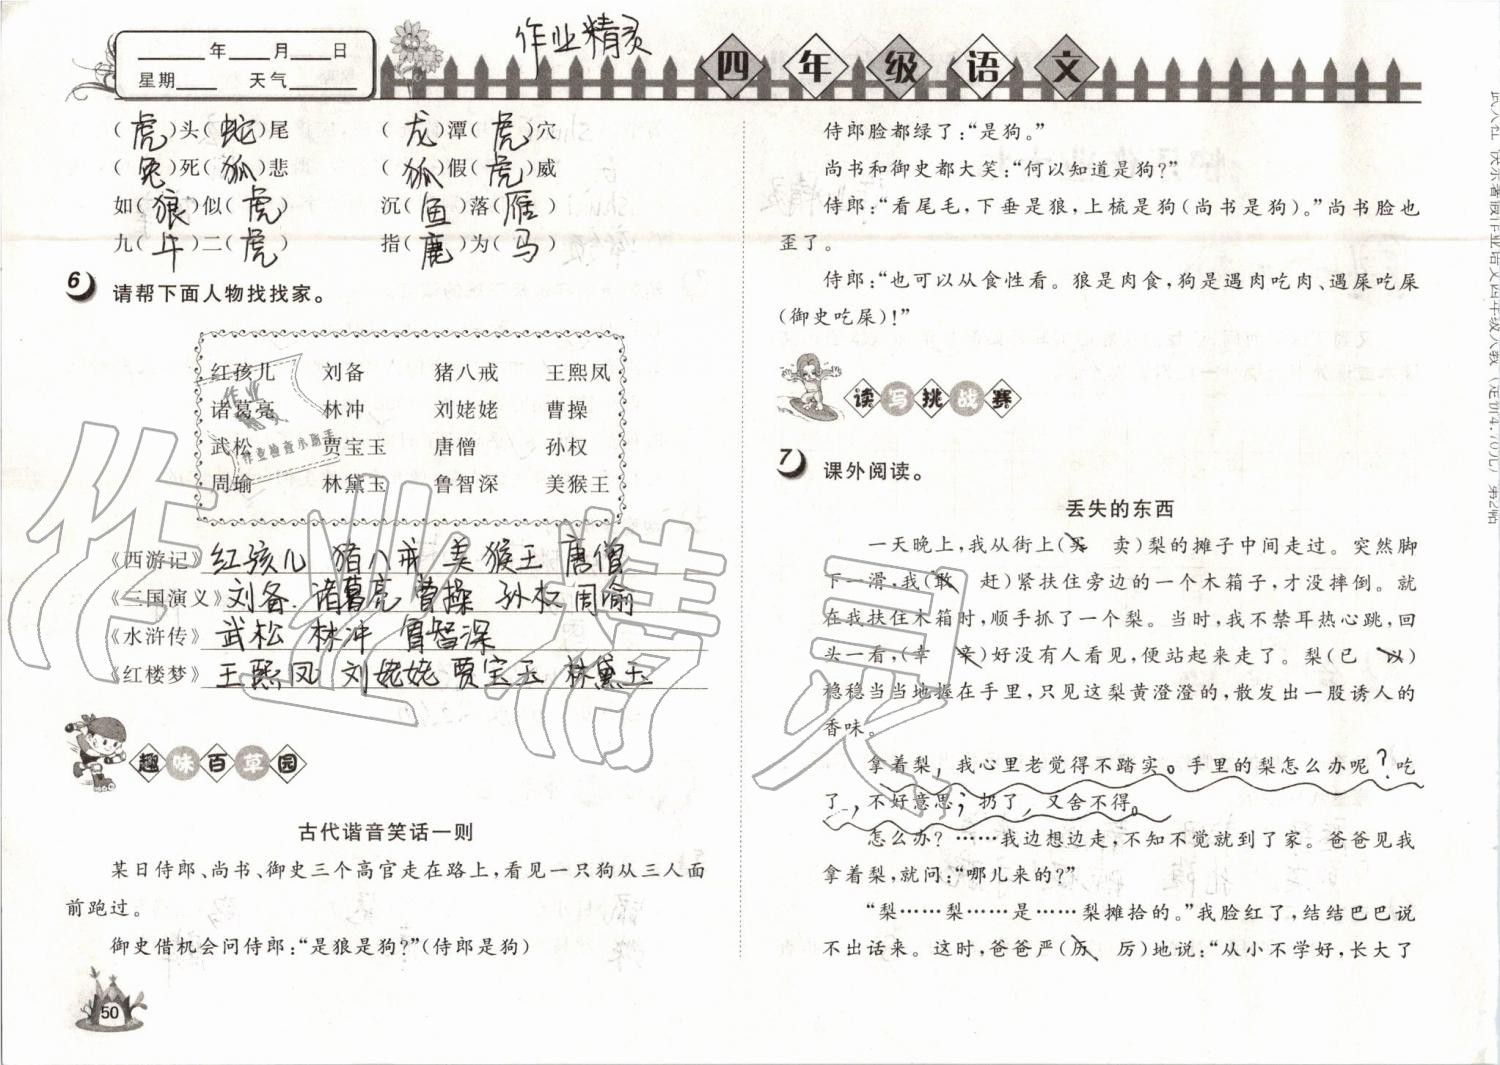 作业精灵
____年____月____日
星期____ 天气________
四年级语文
(虎)头(蛇)尾 (龙)潭(虎)穴
(兔)死(狐)悲 (狐)假(虎)威
如(狼)似(虎) 沉(鱼)落(雁)
九(牛)二(虎) 指(鹿)为(马)
6 请帮下面人物找找家。
红孩儿 刘备 猪八戒 王熙凤
诸葛亮 林冲 刘姥姥 曹操
武松 贾宝玉 唐僧 孙权
周瑜 林黛玉 鲁智深 美猴王
作业精灵
作业检查小助手
《西游记》红孩儿 猪八戒 美猴王 唐僧
《三国演义》刘备 诸葛亮 曹操 孙权 周瑜
《水浒传》武松 林冲 鲁智深
《红楼梦》王熙凤 刘姥姥 贾宝玉 林黛玉
趣味百草园
古代谐音笑话一则
某日侍郎、尚书、御史三个高官走在路上,看见一只狗从三人面
前跑过。
御史借机会问侍郎:“是狼是狗?”(侍郎是狗)
50
侍郎脸都绿了:“是狗。”
尚书和御史都大笑:“何以知道是狗?”
侍郎:“看尾毛,下垂是狼,上梳是狗(尚书是狗)。”尚书脸也
歪了。
侍郎:“也可以从食性看。狼是肉食,狗是遇肉吃肉、遇屎吃屎
(御史吃屎)!”
读写挑战赛
7 课外阅读。
丢失的东西
一天晚上,我从街上(买 卖)梨的摊子中间走过。突然脚
下一滑,我(敢 赶)紧扶住旁边的一个木箱子,才没摔倒。就
在我扶住木箱时,顺手抓了一个梨。当时,我不禁耳热心跳,回
头一看,(幸 辛)好没有人看见,便站起来走了。梨(已 以)
稳稳当当地握在手里,只见这梨黄澄澄的,散发出一股诱人的
香味。
拿着梨,我心里老觉得不踏实。手里的梨怎么办呢?吃
了,不好意思;扔了,又舍不得。
怎么办?……我边想边走,不知不觉就到了家。爸爸见我
拿着梨,就问:“哪儿来的?”
“梨……梨……是……梨摊拾的。”我脸红了,结结巴巴说
不出话来。这时,爸爸严(历 厉)地说:“从小不学好,长大了
作业精灵